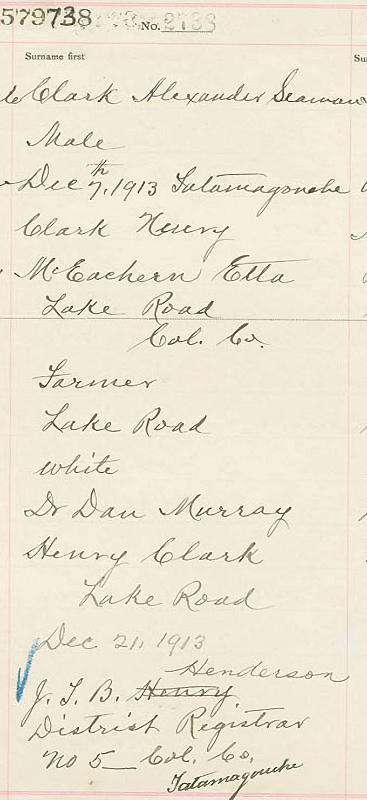 579738
No. 2738
Surname first
Clark Alexander Seaman
Male
Dec 7th, 1913 Tatamagouche
Clark Henry
McEachern Etta
Lake Road
Col. Co.
Farmer
Lake Road
white
Dr Dan Murray
Henry Clark
Lake Road
Dec 21, 1913
Henderson
J. T. B. Henry
District Registrar
No 5 — Col. Co.
Tatamagouche